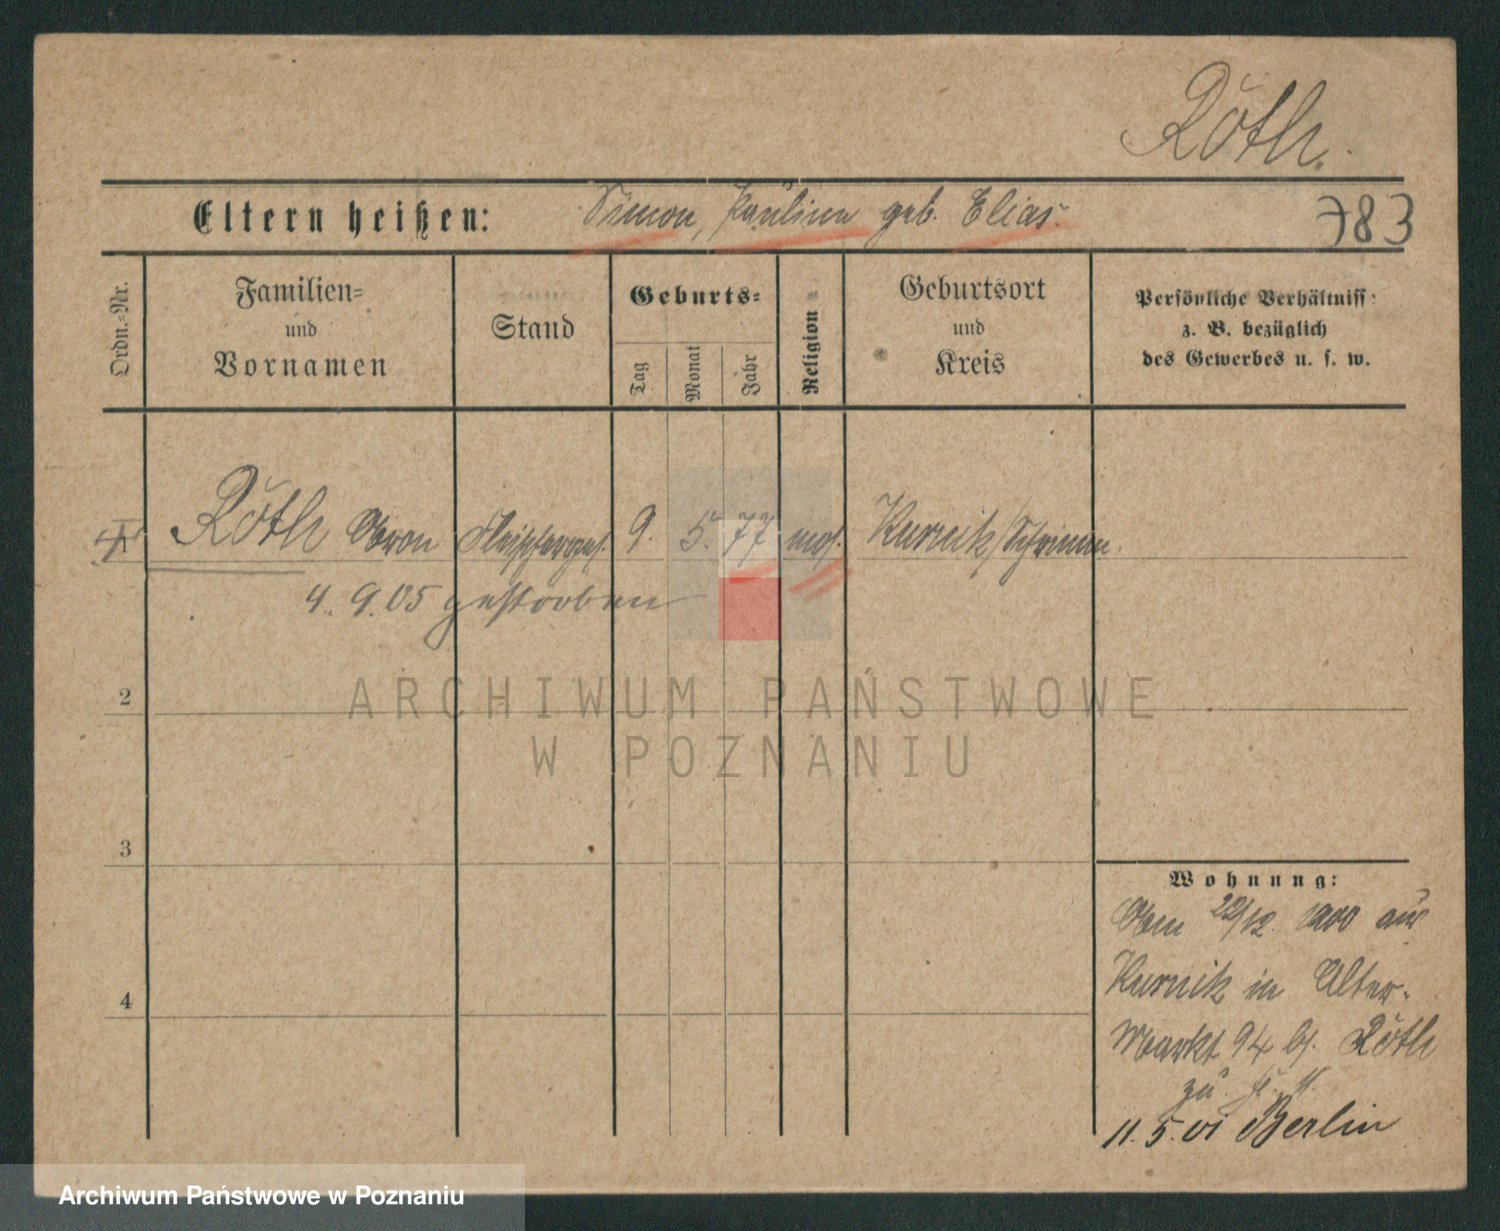 Röth.
Eltern heißen: Simon, Paulina geb. Elias.
783
Ordn.=Nr.
Familien=
und
Vornamen
Stand
Geburts=
Tag
Monat
Jahr
Religion
Geburtsort
und
Kreis
Persönliche Verhältniss:
z. B. bezüglich
des Gewerbes u. s. w.
Röth Fleischerges. 9. 5. 77 mos. Kurnik/Schrimm.
4. 9. 05 gestorben
2
3
4
Wohnung:
22/12. 1900 aus
Kurnik in Alter-
Markt 94 bs. Röth
zu.
11. 5. 01 Berlin
ARCHIWUM PAŃSTWOWE
W POZNANIU
Archiwum Państwowe w Poznaniu